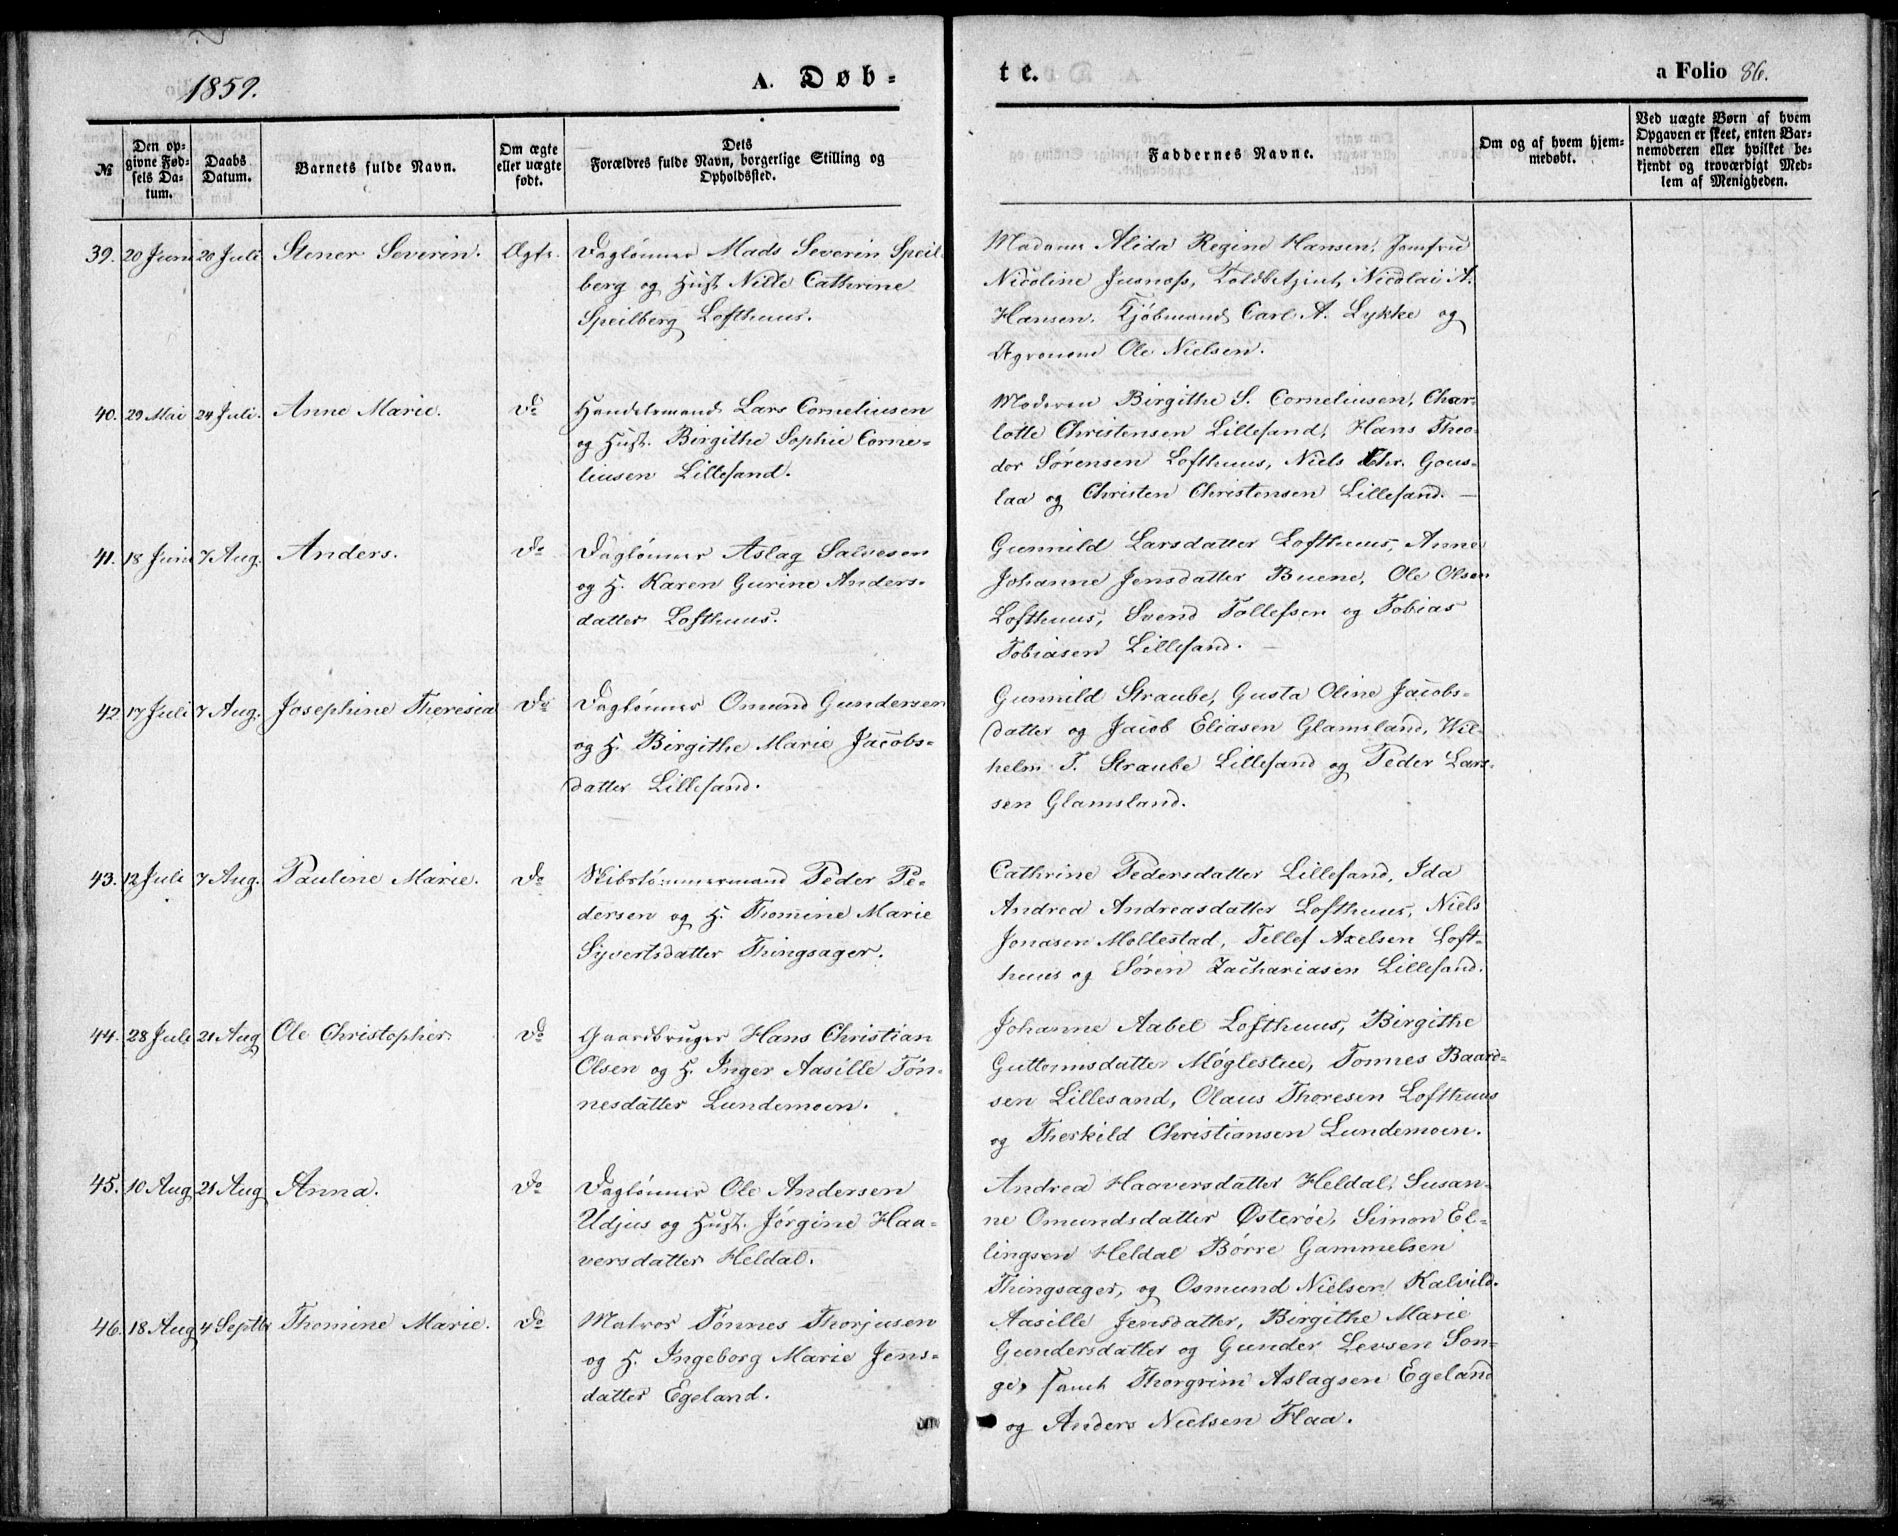 1859.
A. Døb-
te.
a Folio 86.
№
Den opgivne Fødsels Datum.
Daabs Datum.
Barnets fulde Navn.
Om ægte eller uægte født.
Dets Forældres fulde Navn, borgerlige Stilling og Opholdssted.
Faddernes Navne.
Om og af hvem hjemmedøbt.
Ved uægte Børn af hvem Opgaven er skeet, enten Barnemoderen eller hvilket bekjendt og troværdigt Medlem af Menigheden.
39. 20 Juni 20 Juli. Stener Severin. Ægte.
Daglønner Mads Severin Speil-
berg og Hust. Nille Cathrine
Speilberg Lofthuus.
Madame Alida Regine Hansen, Jomfru
Nicoline Jusnæss, Toldbetjent Nicolai A.
Hansen. Kjøbmand Carl A. Lykke og
Agronom Ole Nielsen.
40. 29 Mai 24 Juli. Anne Marie. Do
Handelsmand Lars Corneliusen
og Hust. Birgithe Sophie Corne-
liusen Lillesand.
Moderen Birgithe S. Corneliusen, Char-
lotte Christensen Lillesand, Hans Theo-
dor Sørensen Lofthuus, Niels Chr. Gous-
laa og Christen Christensen Lillesand. —
41. 18 Juni 7 Aug. Anders. Do
Daglønner Aslag Salvesen
og H. Karen Gurine Anders-
datter Lofthuus.
Gunnild Larsdatter Lofthuus, Anne
Johanne Jensdatter Buene, Ole Olsen
Lofthuus, Svend Tollefsen og Tobias
Tobiasen Lillesand. —
42 17 Juli 7 Aug. Josephine Theresia Do
Daglønner Omund Gundersen
og H. Birgithe Marie Jacobs-
datter Lillesand.
Gunnild Straube, Gusta Oline Jacobs-
datter og Jacob Eliasen Glamsland, Wil-
helm T. Straube Lillesand og Peder Lars-
sen Glamsland.
43. 12 Juli 7 Aug. Pauline Marie. Do
Skibstømmermand Peder Pe-
dersen og H. Thomine Marie
Syvertsdatter Thingsager.
Cathrine Pedersdatter Lillesand, Ida
Andrea Andreasdatter Lofthuus, Niels
Jonasen Mollestad, Tellef Axelsen Loft-
huus og Søren Zachariasen Lillesand.
44. 28 Juli 21 Aug Ole Christopher. Do
Gaardbruger Hans Christian
Olsen og H. Inger Aasille Tøn-
nesdatter Lundemoen.
Johanne Aabel Lofthuus, Birgithe
Guttormsdatter Møglestue, Tønnes Baard-
sen Lillesand, Olaus Thoresen Lofthuus
og Therkild Christiansen Lundemoen.
45. 10 Aug 21 Aug Anna. Do
Daglønner Ole Andersen
Udjus og Hust. Jørgine Haa-
versdatter Heldal.
Andrea Haaversdatter Heldal, Susan-
ne Omundsdatter Østerøe, Simon El-
lingsen Heldal Børre Gammelsen
Thingsager, og Osmund Nielsen Kalvild.
46. 18 Aug 4 Septbr Thomine Marie. Do
Matros Tønnes Thorjusen
og H. Ingeborg Marie Jens-
datter Egeland.
Aasille Jensdatter, Birgithe Marie
Gundersdatter og Gunder Levsen Son-
ge, samt Thorgrim Aslagsen Egeland
og Anders Nielsen Flaa.